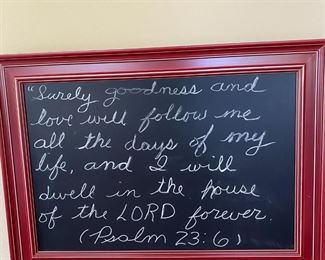 "Surely goodness and
love will follow me
all the days of my
life, and I will
dwell in the house
of the LORD forever.
(Psalm 23:6)